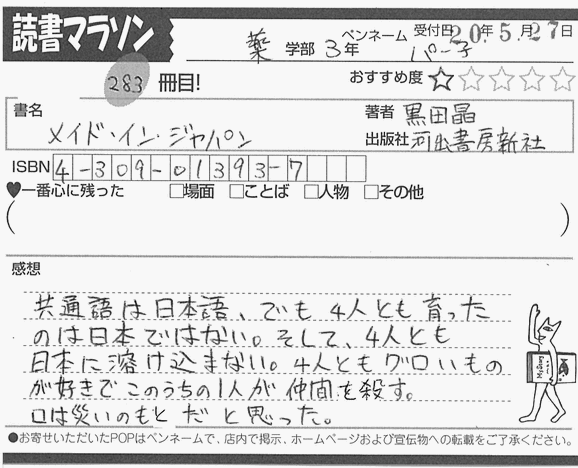 読書マラソン
薬 学部 3年 ペンネーム パー子 受付日 20年 5月 27日
283 冊目! おすすめ度 ☆☆☆☆☆
書名 メイド・イン・ジャパン
著者 黒田晶
出版社 河出書房新社
ISBN 4-309-01393-7
♥一番心に残った □場面 □ことば □人物 □その他
( )
感想
共通語は日本語、でも4人とも育った
のは日本ではない。そして、4人とも
日本に溶け込まない。4人ともグロいもの
が好きでこのうちの1人が仲間を殺す。
口は災いのもとだと思った。
●お寄せいただいたPOPはペンネームで、店内で掲示、ホームページおよび宣伝物への転載をご了承ください。